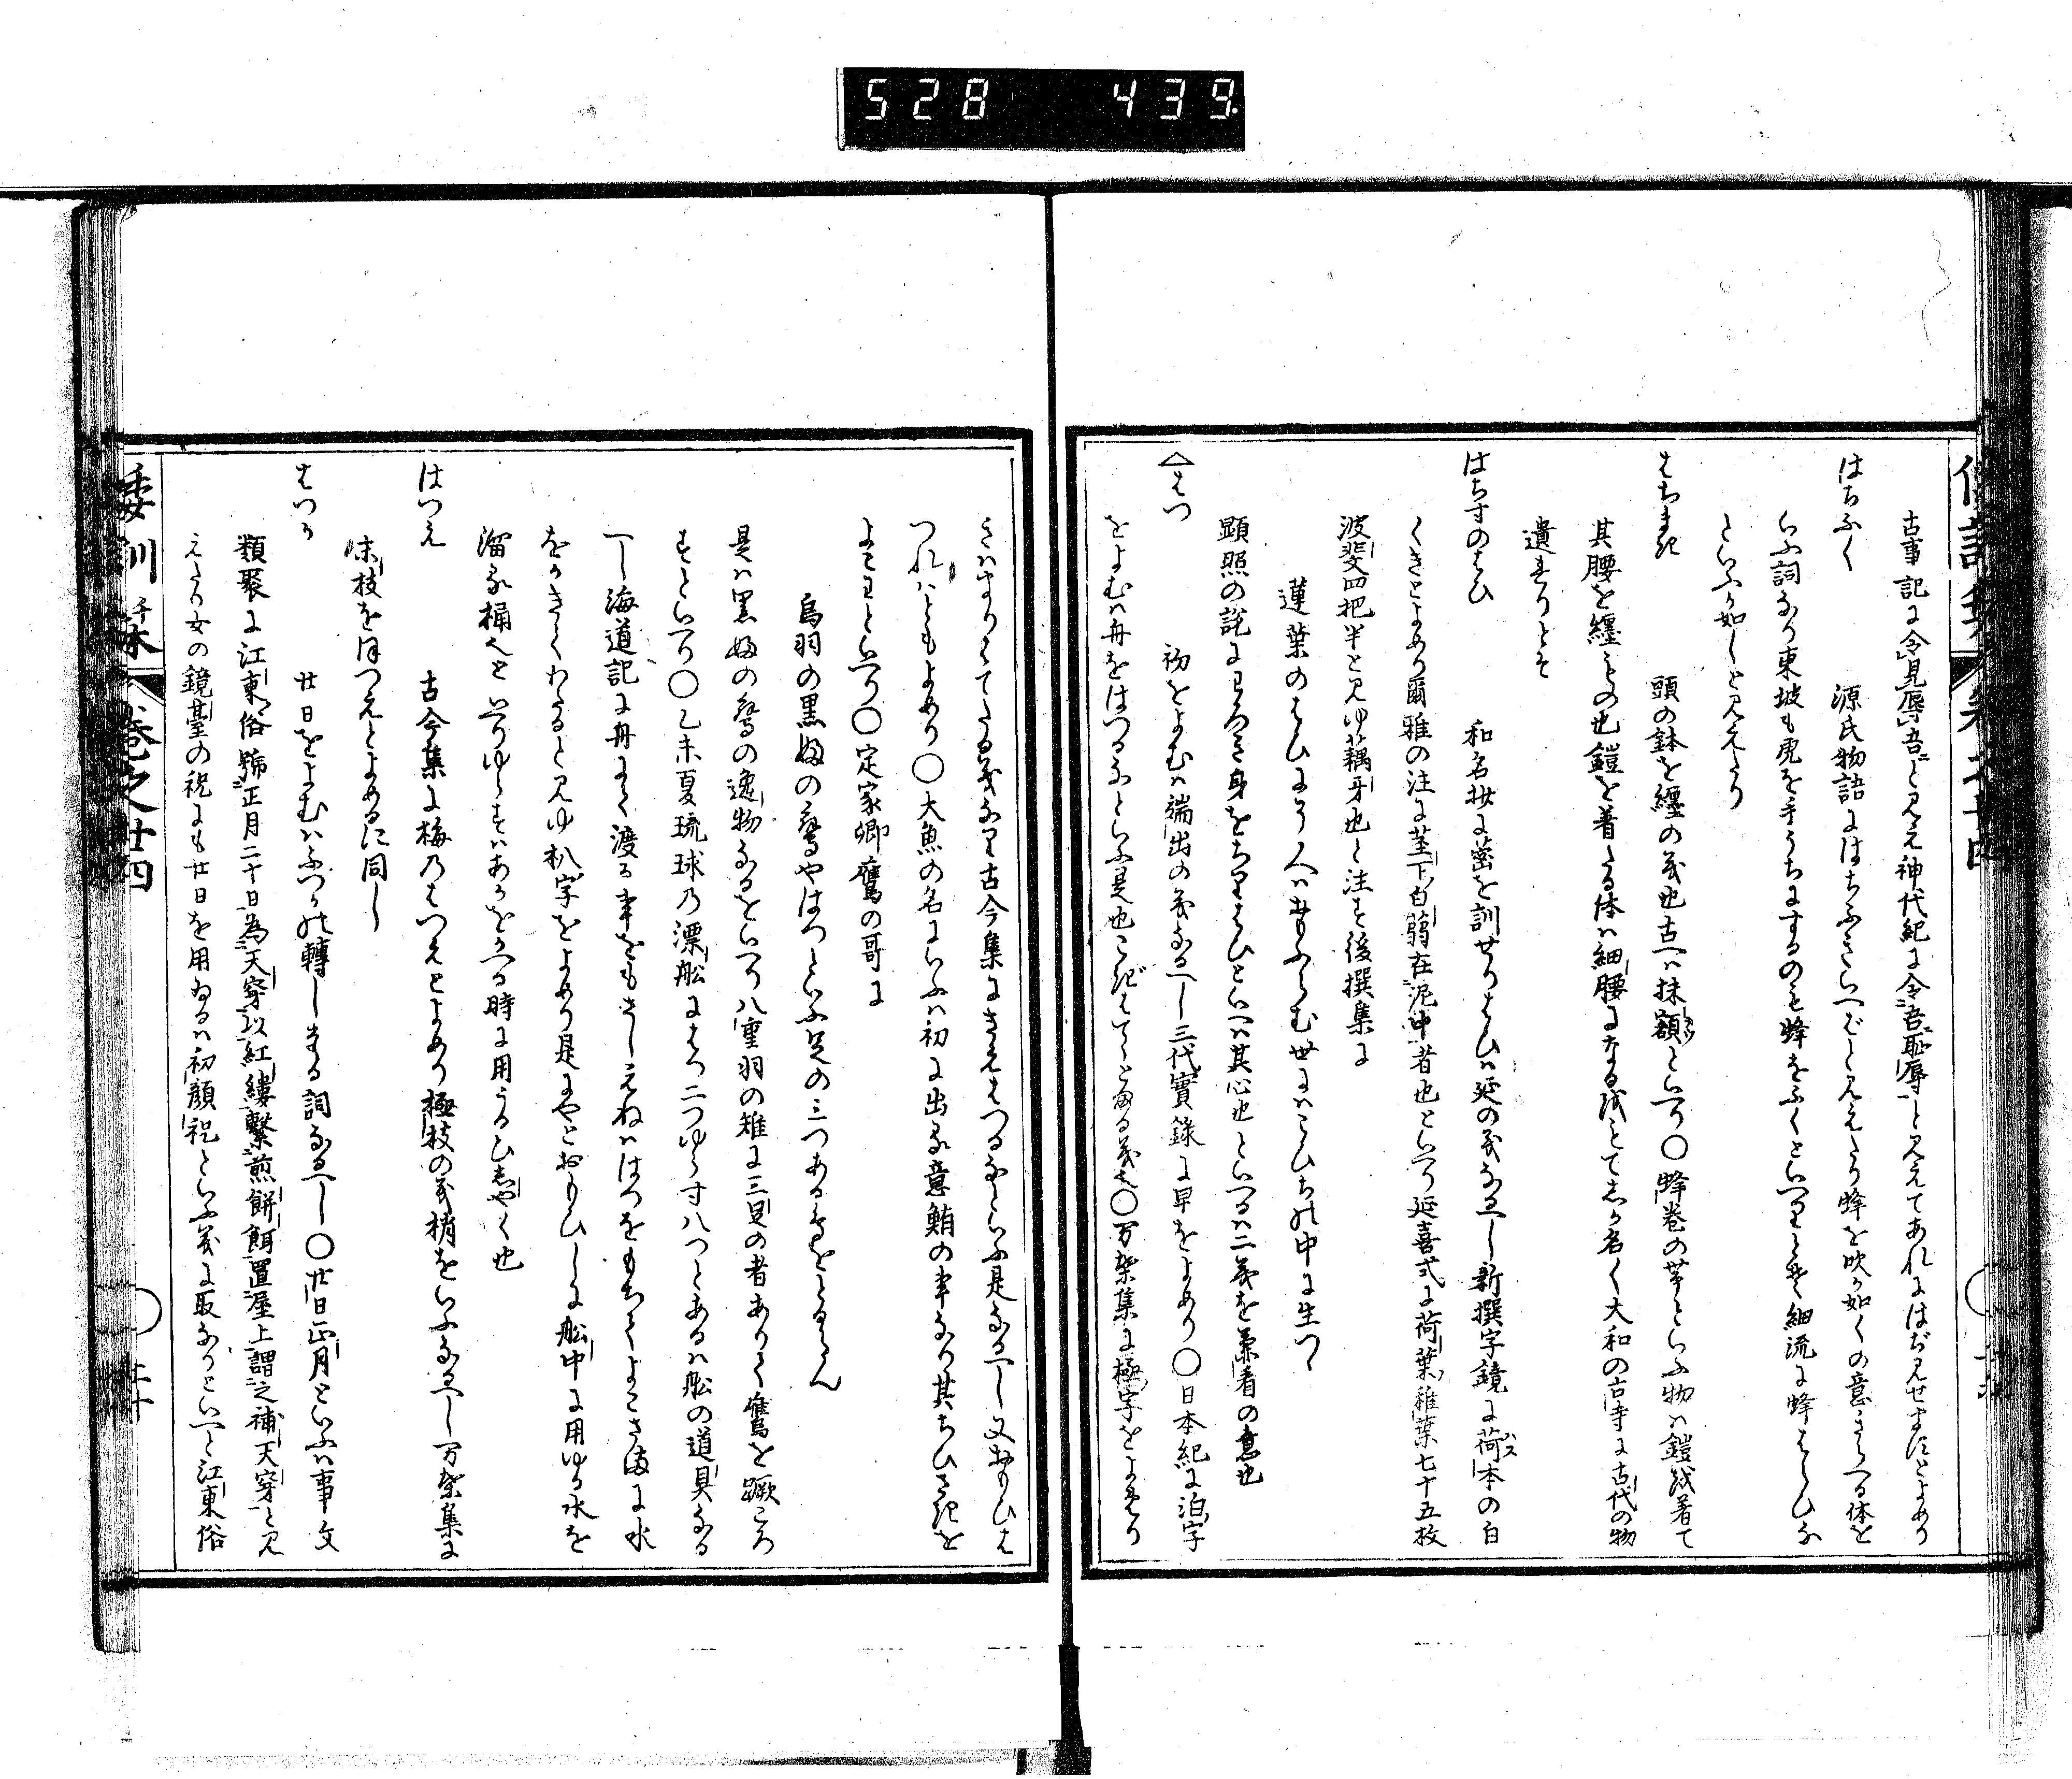 528 439
古事記に令見辱吾と見え神代紀に令吾恥辱と見えてあれにはぢ見せまにとよめり
はちふく 源氏物語にはちふきいへばと見えたり蜂を吹か如くの意さらへる体を
いふ詞なり東坡も虎を手うちにするのも蜂をふくといへりとぞ細流に蜂はらひな
といふか如しと見えたり
はちまき 頭の鉢を纏の義也古へは抹額といへり〇蜂巻の帯といふ物は鎧を着て
其腰を纏もの也鎧を着たる体は細腰になる故とてしか名く大和の古寺に古代の物
遺れりとそ
はちすのはひ 和名抄に蔤を訓せりはひは延の義なるへし新撰字鏡に荷本の白
くきとよめり爾雅の注に茎下白蒻在泥中者也といへり延喜式に荷葉稚葉七十五枚
波斐四把半と見ゆ藕牙也と注す後撰集に
蓮葉のはひにそ人はおもふらむ世にはこひちの中に生つゝ
顕照の説にわろき身をちりはひといへは其心也といへるは二義を兼看の意也
△はつ 初をよむは端出の義なるへし三代實録に早をよめり〇日本紀に泊字
をよむは舟をはつるなといふ是也こぎはてゝとある義也〇万葉集に極字をよめり
きはまりはてたる義なり古今集にきえはつるなといふ是なるへし又おもひは
つれはともよめり〇大魚の名にいふは初に出る意鮪の事なり其ちひさきを
よこわといへり〇定家卿鷹の哥に
鳥羽の黒ぬの鷲やはつといふ足の三つある鳥をとるらん
是は黒ぬの鷲の逸物なるをいへり八重羽の雉に三足の者ありて鷹を蹶ころ
すといへり〇乙未夏琉球の漂船にはつ二つゆす八つとあるは船の道具なる
へし海道記に舟にて渡る事をもさしえねははつをもちてよこさまに水
をかきてわたると見ゆ朳字をよめり是にやとおもひしに船中に用ゆる水を
溜る桶也といへりゆすはあかをかへる時に用うるひしやく也
はつえ 古今集に梅のはつえとよめり極枝の義梢をいふなるへし万葉集に
末枝をほつえとよめるに同し
はつか 廿日をよむはふつかの轉しきる詞なるへし〇廿日正月といふは事文
類聚に江東俗號正月二十日為天穿以紅縷繋煎餅餌置屋上謂之補天穿と見
えたり女の鏡臺の祝にも廿日を用ゐるは初顔祝といふ義に取なりといへと江東俗
倭訓栞 巻之廿四